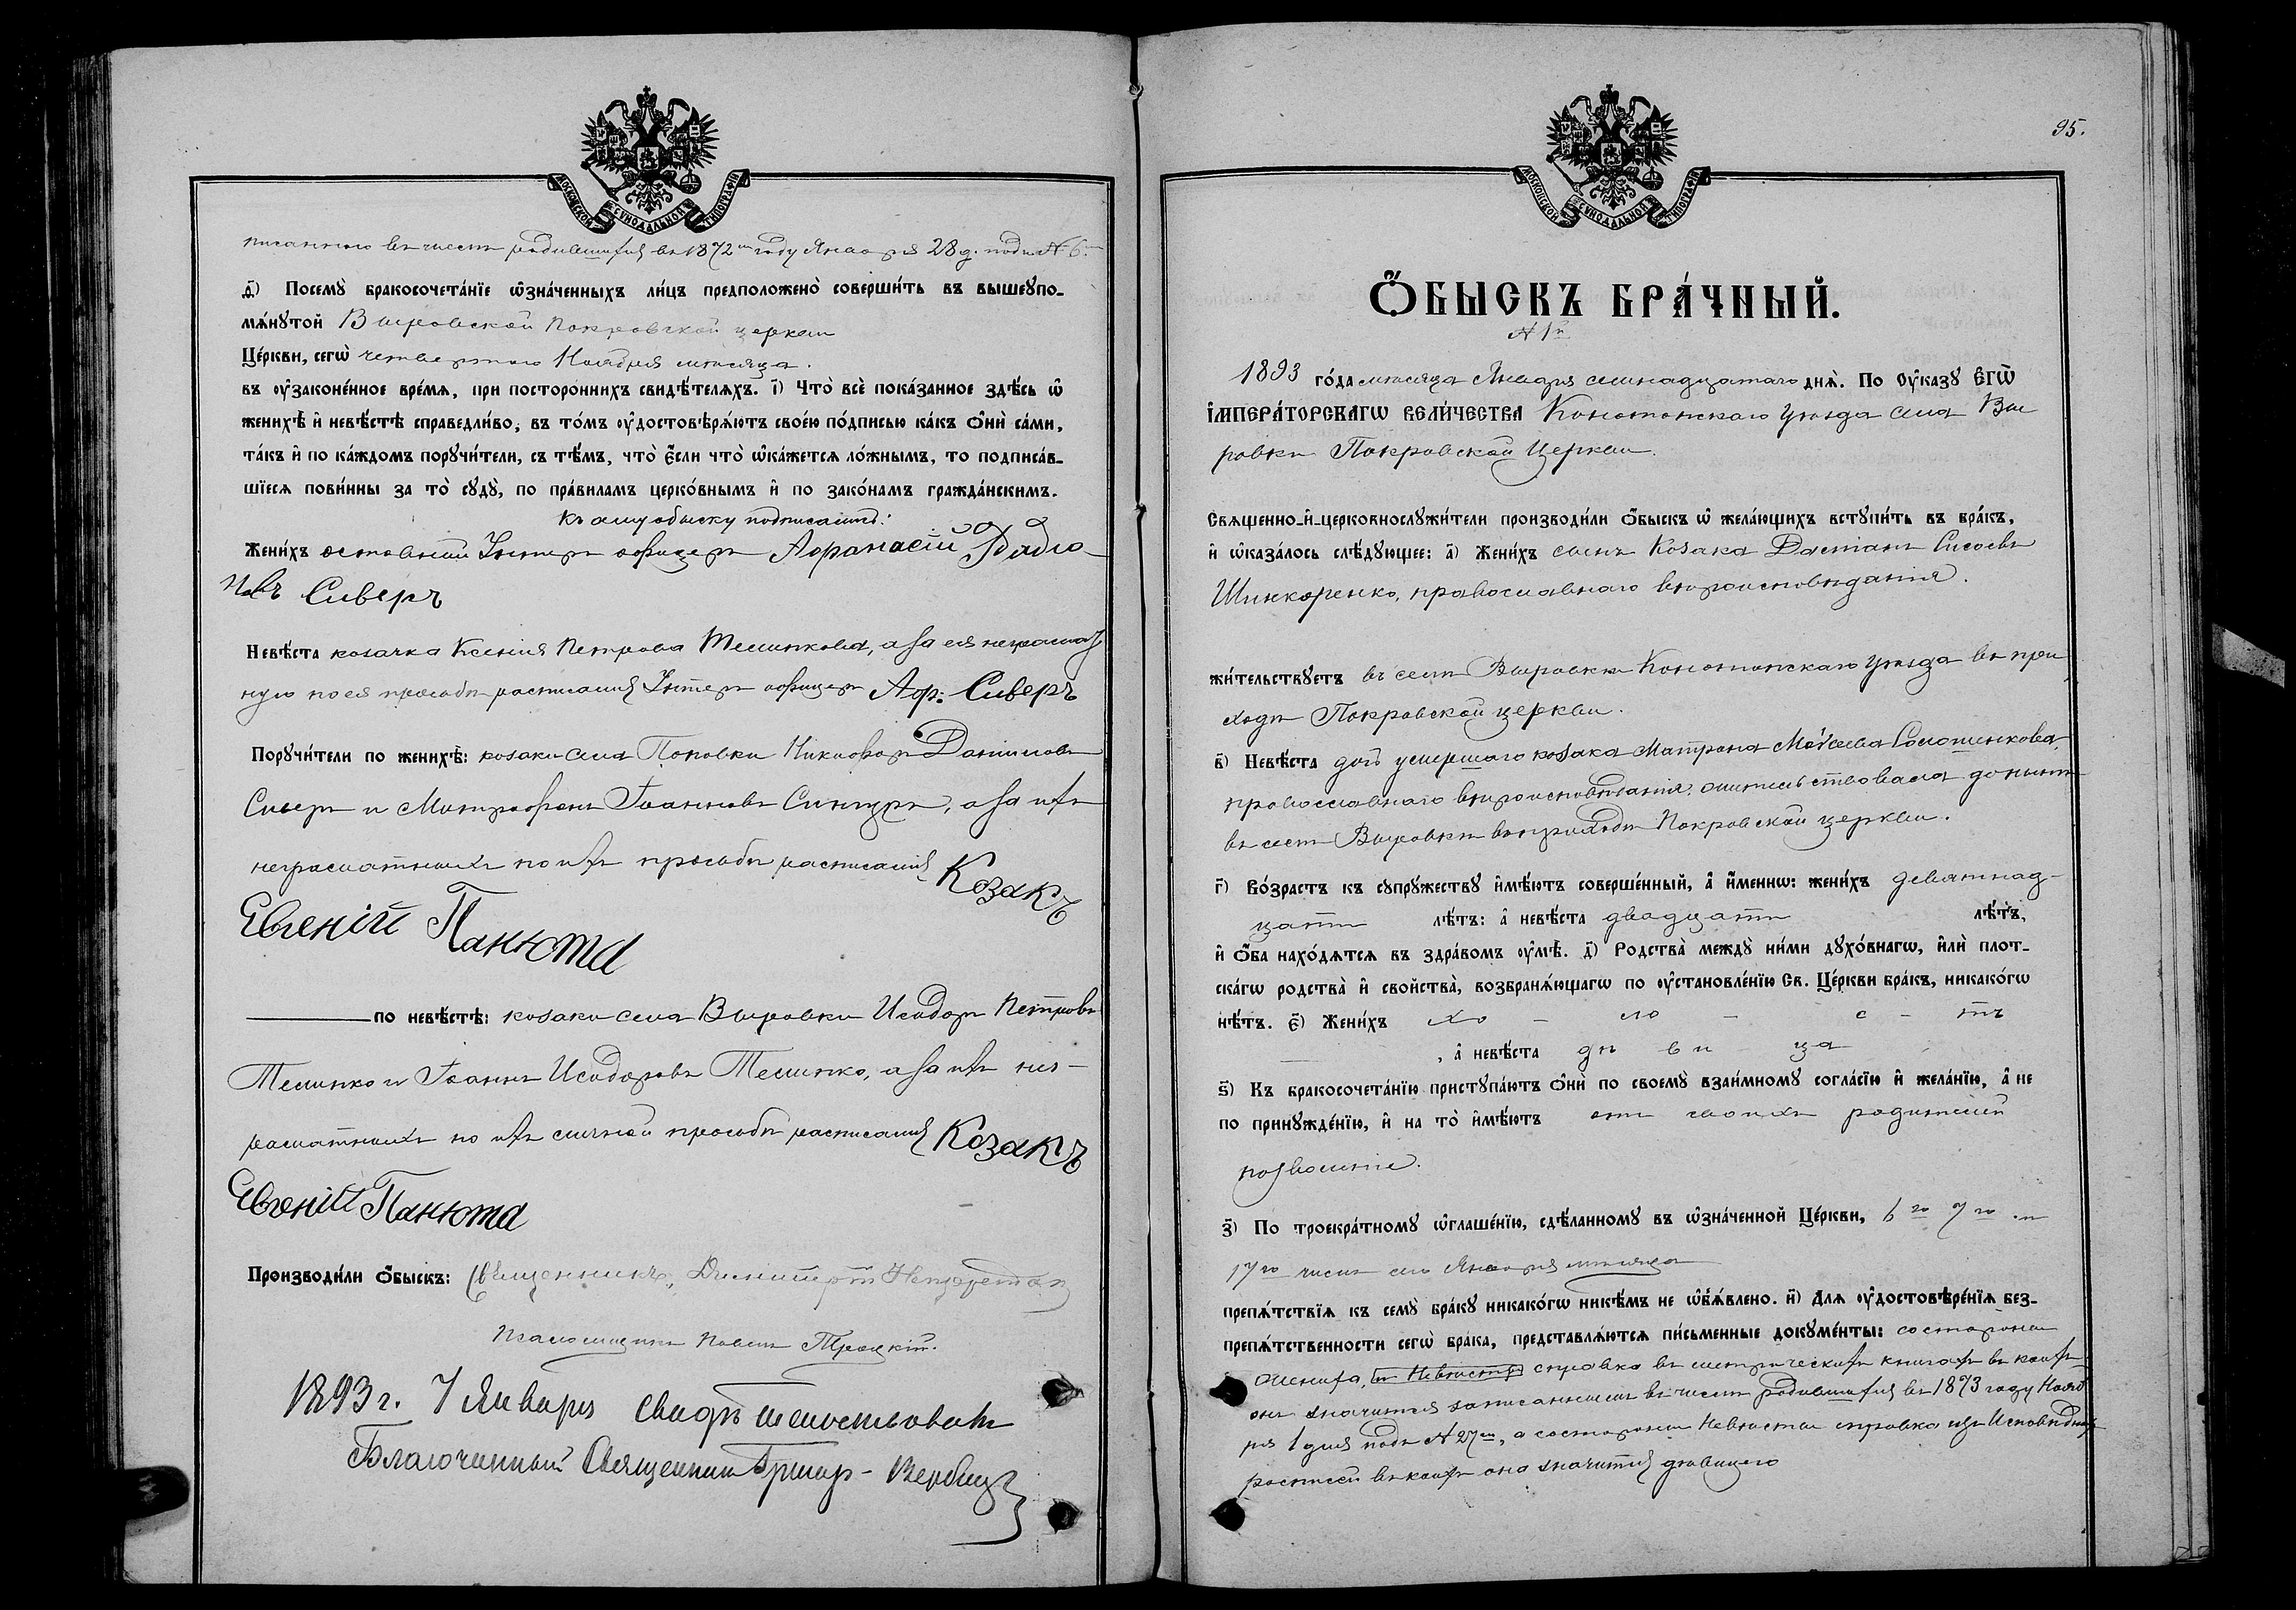 МОСКОВСКОЙ СѴНОДАЛЬНОЙ ТИПОГРАФІИ
писанною въ числѣ родившихся въ 1872 м году Января 28 д. подъ № 6.
ѳ҃) Посемꙋ̀ бракосочета́нїе ѡ҆зна́ченныхъ ли́цъ предположено̀ соверши́ть въ вышеꙋпо-
мѧ́нꙋтой Выровской Покровской церкви
Це́ркви, сегѡ̀ четвертаго Ноября мѣсяца.
въ оу҆законе́нное вре́мѧ, при посторо́ннихъ свидѣ́телѧхъ. і҃) Что̀ всѐ пока́занное здѣ́сь ѡ҆
женихѣ̀ и҆ невѣ́стѣ справедли́во, въ то́мъ оу҆достовѣрѧ́ютъ свое́ю по́дписью ка́къ ѻ҆нѝ са́ми,
та́къ и҆ по ка́ждомъ порꙋчи́тели, съ тѣ́мъ, что̀ є҆́сли что̀ ѡ҆ка́жетсѧ ло́жнымъ, то подписа́в-
шїесѧ пови́нны за то̀ сꙋдꙋ̀, по пра́виламъ церко́внымъ и҆ по зако́намъ гражда́нскимъ.
Къ сему обыску подписались:
Жени́хъ отставный Унтеръ офицеръ Афанасій Радіо-
новъ Сиверъ
Невѣ́ста козачка Ксенія Петрова Темникова, а за ея неграмот
ную по ея просьбѣ росписался Унтеръ офицеръ Аф: Сиверъ
Порꙋчи́тели по женихѣ̀: козаки села Поповки Никифоръ Даниловъ
Сиверъ и Митрофанъ Іоанновъ Сингуръ, а за ихъ
неграмотныхъ по ихъ просьбѣ росписался Козакъ
Евгеній Панюта
по невѣ́стѣ: козаки села Выровки Исидоръ Петровъ
Темнико и Іоаннъ Исидоровъ Темнико, а за ихъ нег-
рамотныхъ по ихъ личной просьбѣ росписался Козакъ
Евгеній Панюта
Производи́ли ѻ҆́быскъ: Священникъ Димитрій
Псаломщикъ Павелъ Троцкій.
1893 г. 7 Января свидѣтельствовалъ
Благочинный Священникъ Григор- Вербиц
МОСКОВСКОЙ СѴНОДАЛЬНОЙ ТИПОГРАФІИ
95.
Ѻ҆́БЫСКЪ БРА́ЧНЫЙ.
№ 1й
1893 го́да мѣсяца Января семнадцатаго днѧ̀. По Оу҆ка́зꙋ Є҆гѡ̀
І҆мпера́торскагѡ Вели́чества Конотопскаго уѣзда села Вы
ровки Покровской Церкви.
Свѧщенно-и҆-церковнослꙋжи́тели производи́ли ѻ҆́быскъ ѡ҆ жела́ющихъ встꙋпи́ть въ бра́къ,
и҆ ѡ҆каза́лось слѣ́дꙋющее: а҃) Жени́хъ сынъ Козака Даміанъ Сисоевъ
Шинкоренко, православнаго вѣроисповѣданія.
жи́тельствꙋетъ въ селѣ Выровкѣ Конотопскаго уѣзда въ при
ходѣ Покровской церкви.
в҃) Невѣ́ста дочь умершаго козака Матрона Моѵсеева Соломникова,
православнаго вѣроисповѣданія, жительствовала донынѣ
въ селѣ Выровкѣ въ приходѣ Покровской церкви.
г҃) Во́зрастъ къ сꙋпрꙋ́жествꙋ и҆мѣ́ютъ соверше́нный, а҆ и҆́меннѡ: жени́хъ девятнад-
цати лѣ́тъ: а҆ невѣ́ста двадцати лѣ́тъ,
и҆ ѻ҆́ба нахо́дѧтсѧ въ здра́вомъ оу҆мѣ̀. д҃) Родства̀ междꙋ̀ ни́ми дꙋхо́внагѡ, и҆лѝ плот-
ска́гѡ родства̀ и҆ свойства̀, возбранѧ́ющагѡ по оу҆становле́нїю Св. Це́ркви бра́къ, никако́гѡ
нѣ́тъ. є҃) Жени́хъ хо - ло - с - тъ
, а҆ невѣ́ста дѣ ви ца
ѕ҃) Къ бракосочета́нїю пристꙋпа́ютъ ѻ҆нѝ по своемꙋ̀ взаи́мномꙋ согла́сїю и҆ жела́нїю, а҆ не
по принꙋжде́нїю, и҆ на то̀ и҆мѣ́ютъ отъ своихъ родителей
позволеніе.
з҃) По троекра́тномꙋ ѡ҆глаше́нїю, сдѣ́ланномꙋ въ ѡ҆зна́ченной Це́ркви, 6го 7го и
17го числъ сего Января мѣсяца
препѧ́тствїѧ къ семꙋ̀ бра́кꙋ никако́гѡ никѣ́мъ не ѡ҆б̾ѧ́влено. и҃) Длѧ оу҆достовѣре́нїѧ без-
препѧ́тственности сегѡ̀ бра́ка, представлѧ́ютсѧ пи́сьменные докꙋме́нты: со стороны
жениха, и Невѣсты справка въ метрическихъ книгахъ въ коихъ
онъ значится записаннымъ въ числѣ родившихся въ 1873 году Нояб
ря 1 дня подъ № 27м, а со стороны Невѣсты справка изъ Исповѣдныхъ
росписей въ коихъ она значится дѣвицею